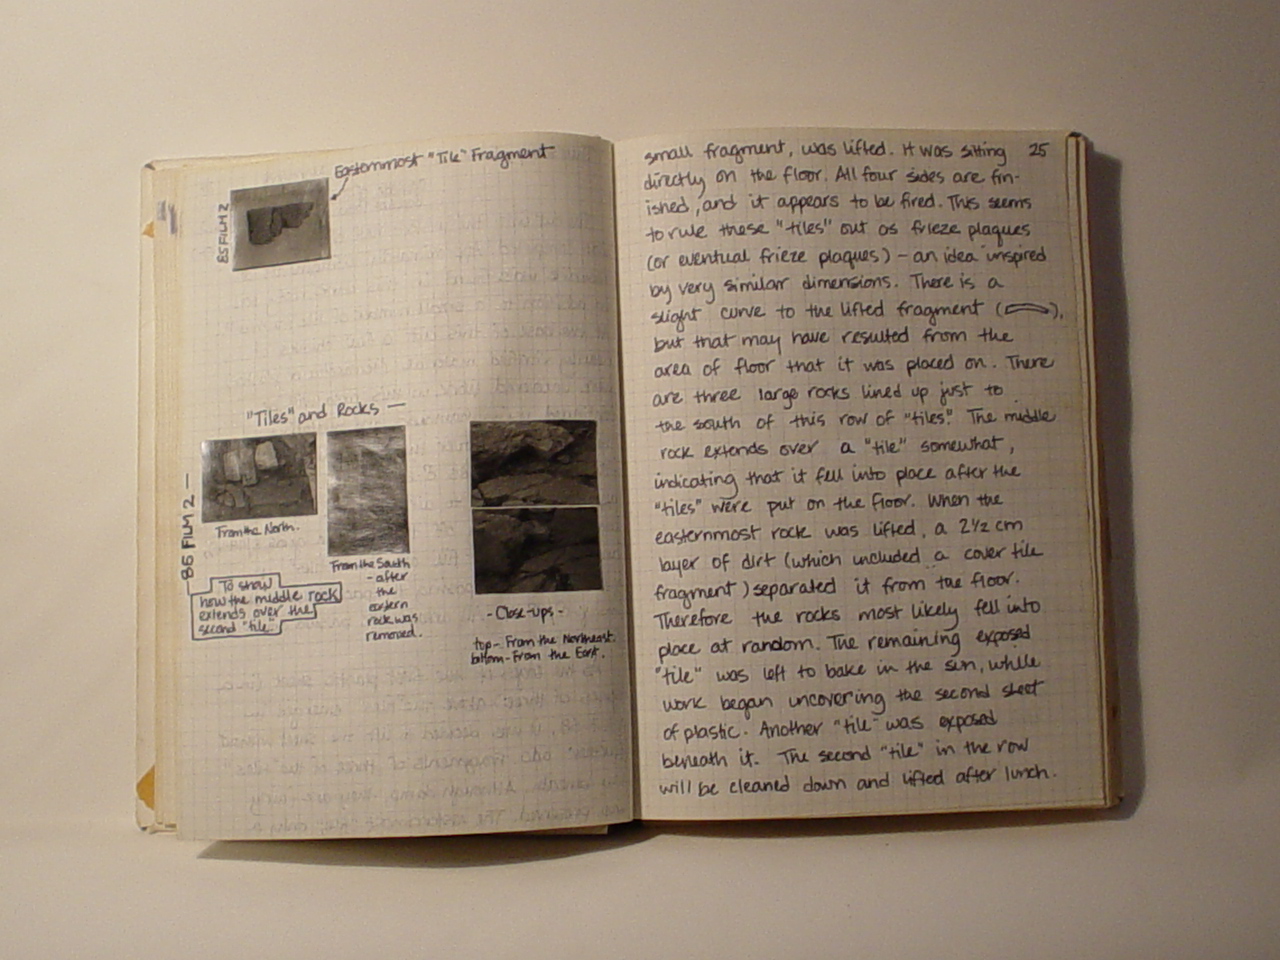 Easternmost "Tile" Fragment
85 FILM 2
"Tiles" and Rocks —
86 FILM 2 —
From the North.
To show
how the middle rock
extends over the
second "tile."
From the South
- after
the
eastern
rock was
removed.
- Close-ups -
top - From the Northeast.
bottom - From the East.
25
small fragment, was lifted. It was sitting
directly on the floor. All four sides are fin-
ished, and it appears to be fired. This seems
to rule these "tiles" out as frieze plaques
(or eventual frieze plaques) - an idea inspired
by very similar dimensions. There is a
slight curve to the lifted fragment ( ),
but that may have resulted from the
area of floor that it was placed on. There
are three large rocks lined up just to
the south of this row of "tiles." The middle
rock extends over a "tile" somewhat,
indicating that it fell into place after the
"tiles" were put on the floor. When the
easternmost rock was lifted, a 2½ cm
layer of dirt (which included a cover tile
fragment) separated it from the floor.
Therefore the rocks most likely fell into
place at random. The remaining exposed
"tile" was left to bake in the sun, while
work began uncovering the second sheet
of plastic. Another "tile" was exposed
beneath it. The second "tile" in the row
will be cleaned down and lifted after lunch.